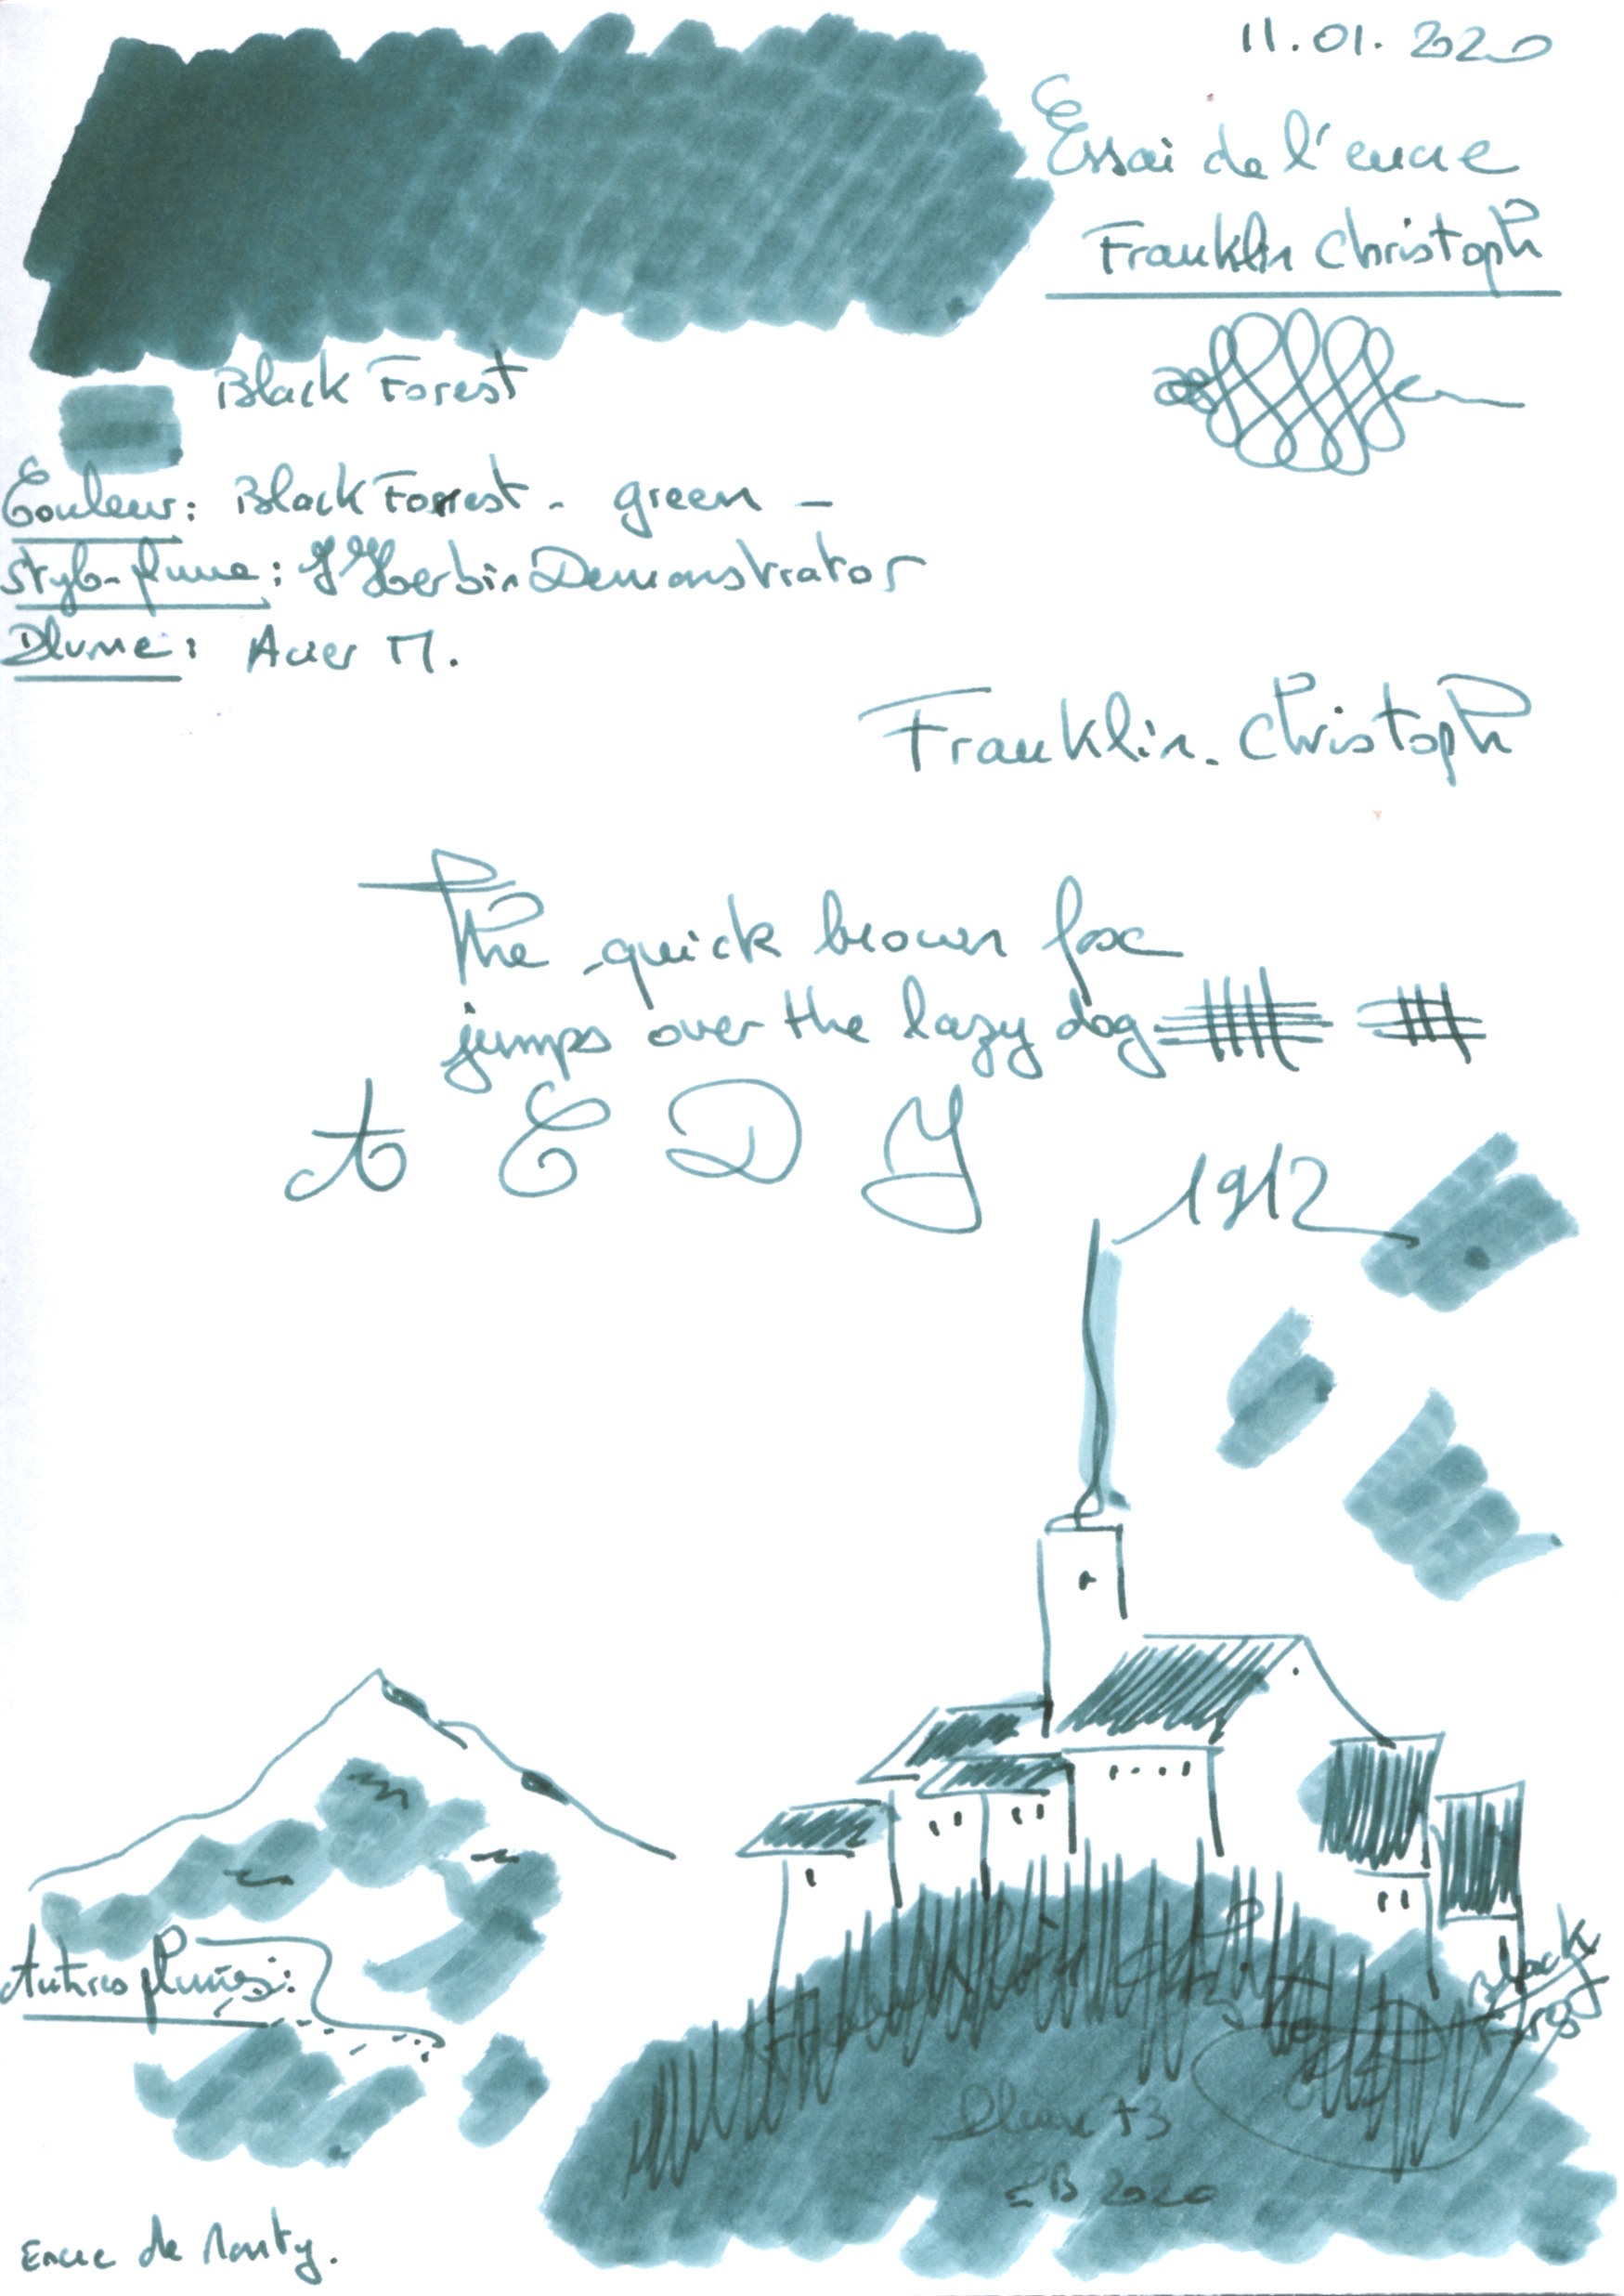 11.01.2020
Essai de l'encre
Franklin Christoph
Black Forest
Couleur: Black Forrest - green -
Stylo-plume: J Herbin Demonstrator
Plume: Acier M.
Franklin-Christoph
The quick brown fox
jumps over the lazy dog
A E D Y
1912
Black
Autres plumes:
Plume 73
EB 2020
Encre de Monty.